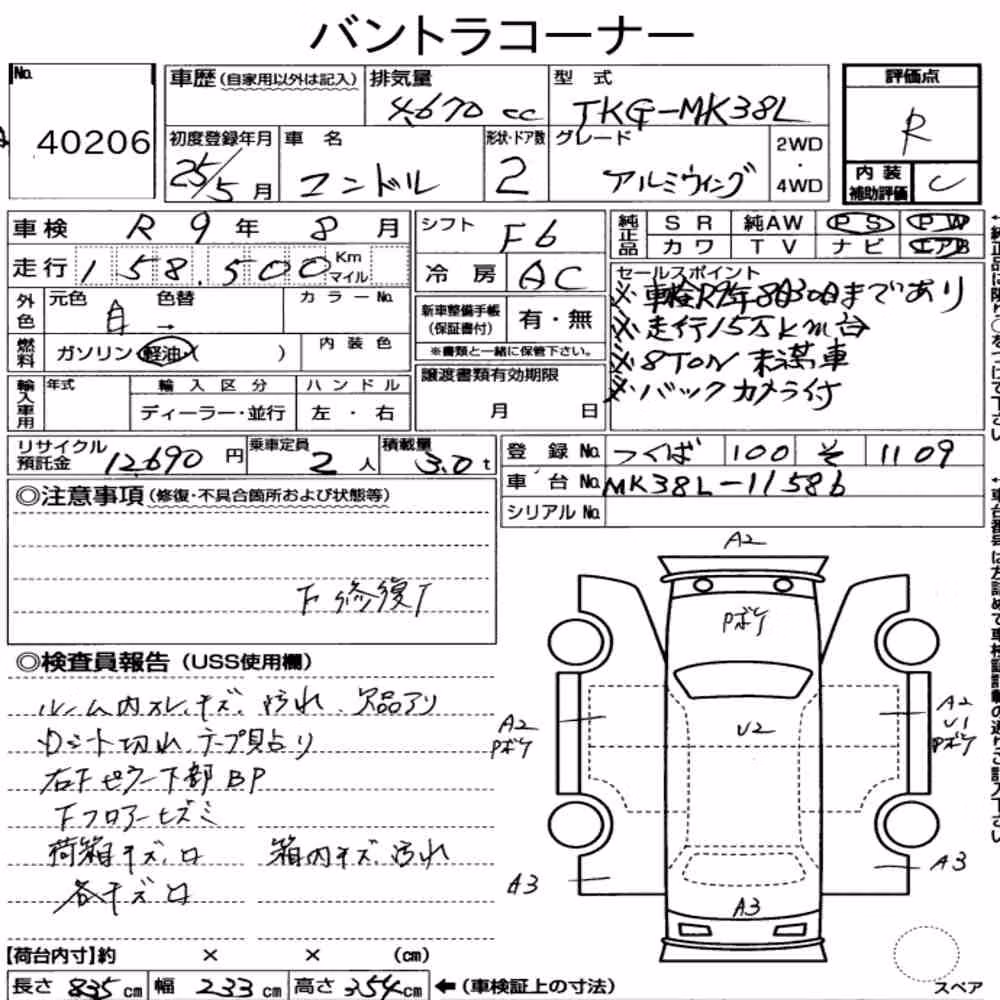 バントラコーナー
No.
40206
車歴 (自家用以外は記入)
排気量
4,670 cc
型式
TKG-MK38L
初度登録年月
25/5 月
車名
コンドル
形状・ドア数
2
グレード
アルミウィング
2WD
・
4WD
評価点
R
内装
補助評価
C
車検 R 9 年 8 月
走行 158,500 Km
マイル
外色
元色
白 →
色替
カラーNo.
燃料
ガソリン・軽油・( )
内装色
輸入車用
年式
輸入区分
ディーラー・並行
ハンドル
左・右
シフト
F6
冷房 AC
新車整備手帳
(保証書付)
有・無
※書類と一緒に保管下さい。
譲渡書類有効期限
月 日
純正品
SR 純AW PS PW
カワ TV ナビ エアB
セールスポイント
※車検R9年8月30日まであり
※走行15万km台
※8TON未満車
※バックカメラ付
リサイクル
預託金
12,690 円
乗車定員
2 人
積載量
3.0 t
登録No. つくば 100 そ 1109
車台No. MK38L-11586
シリアルNo.
◎注意事項 (修復・不具合箇所および状態等)
下修復了
◎検査員報告 (USS使用欄)
ルーム内スレ、キズ、汚れ、欠品アリ
シート切れ テープ貼り
右Fピラー下部BP
Fフロアーヒズミ
荷箱キズ、凹 箱内キズ、汚れ
各キズ凹
【荷台内寸】約 × × (cm)
長さ 835 cm 幅 233 cm 高さ 354 cm ←(車検証上の寸法)
A2
Pボケ
U2
A2
Pボケ
A2
U1
Pボケ
A3
A3
A3
スペア